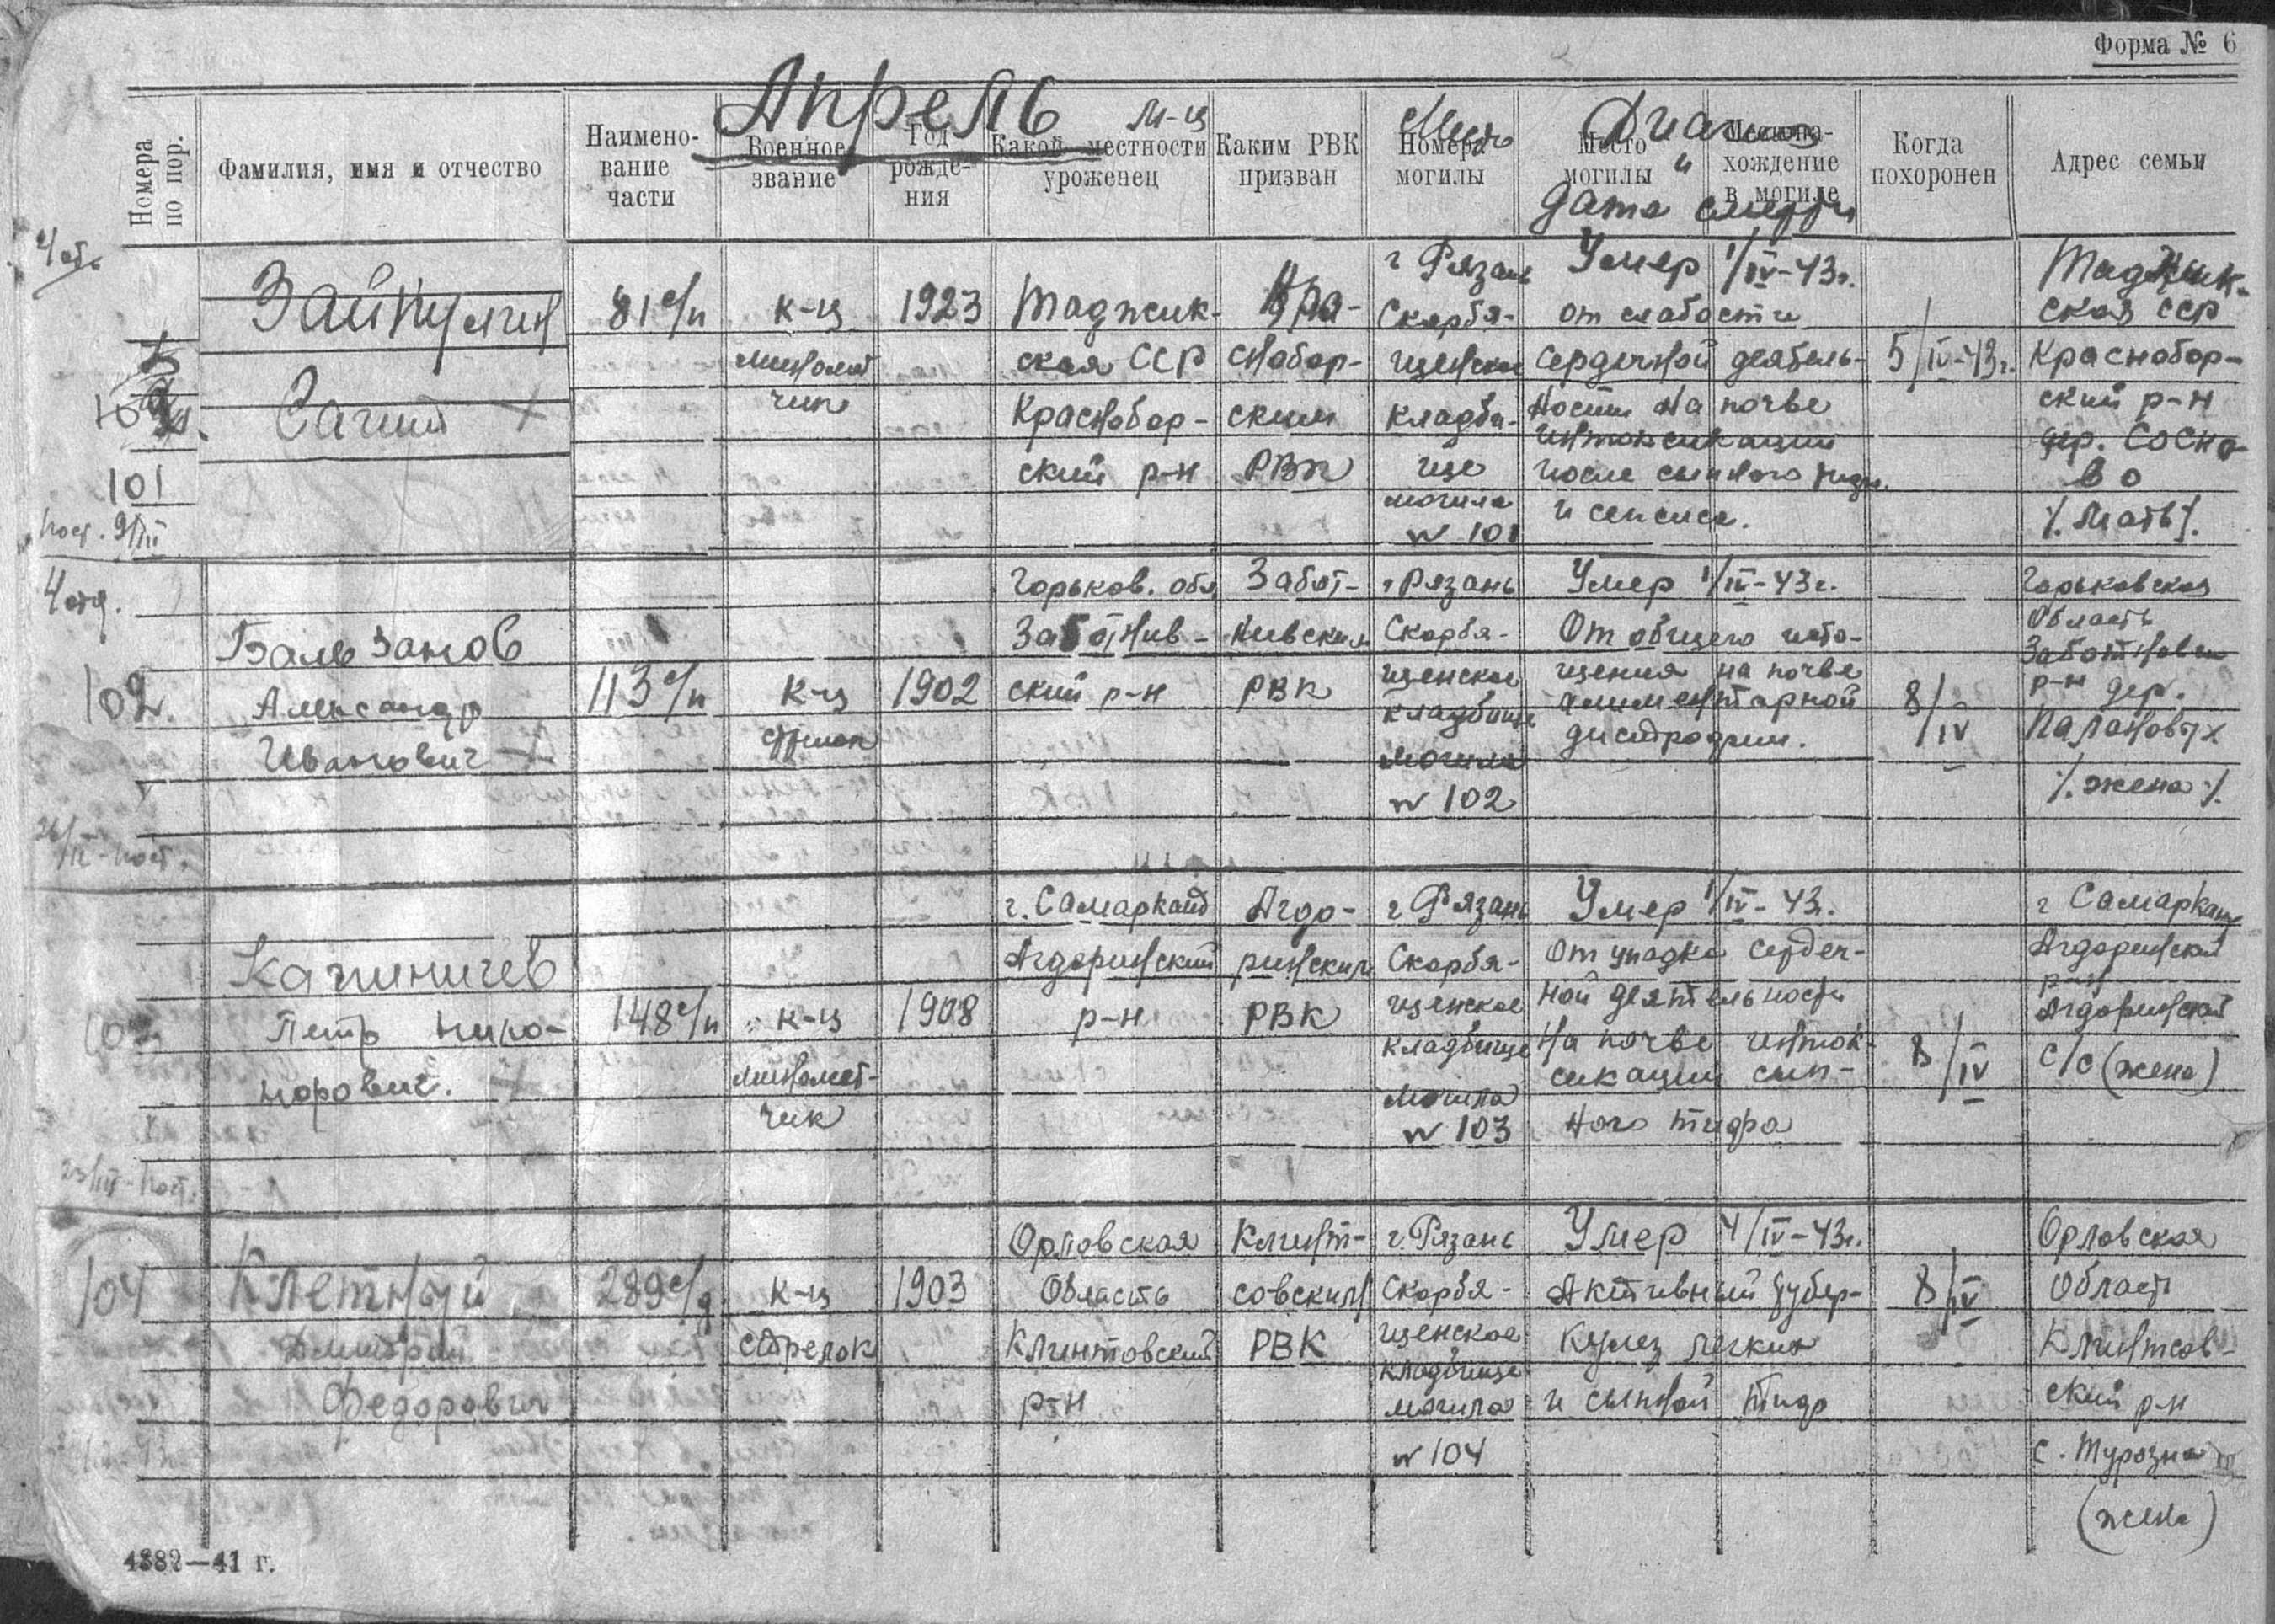 Форма № 6
Апрель м-ц
Номера по пор.
Фамилия, имя и отчество
Наимено-
вание
части
Военное
звание
Год
рожде-
ния
Какой местности
уроженец
Каким РВК
призван
Номера
могилы
Место
могилы
Местона-
хождение
в могиле
Диагноз
и
дата смерти
Когда
похоронен
Адрес семьи
4 отд.
101
пост. 9/III
Зайнулин
Сагит
81 с/п
к-ц
миномет
чик
1923
Таджик-
ская ССР
Краснобор-
ский р-н
Кра-
снобор-
ским
РВК
г Рязань
Скорбя-
щенское
кладби-
ще
могила
№ 101
Умер 1/IV-43г.
от слабости
сердечной деятель-
ности на почве
интоксикации
после сыпного тифа
и сепсиса.
5/IV-43г.
Таджик-
ская ССР
Краснобор-
ский р-н
дер. Сосно-
во
/.Мать/.
4 отд.
102.
26/II-пост.
Бальзанов
Александр
Иванович
113 с/п
к-ц
стрелок
1902
Горьков. обл
Заботнив-
ский р-н
Забот-
нивским
РВК
г Рязань
Скорбя-
щенское
кладбище
могила
№ 102
Умер 1/IV-43г.
От общего исто-
щения на почве
алиментарной
дистрофии.
8/IV
Горьковская
область
р-н дер.
Палановых
/.жена/.
23/III-пост.
Калиничев
Петр Нико-
норович.
148 с/п
к-ц
миномет-
чик
1908
г. Самарканд
Агдоринский
р-н
Агдо-
ринским
РВК
г Рязань
Скорбя-
щенское
кладбище
могила
№ 103
Умер 1/IV-43г.
От упадка сердеч-
ной деятельности
на почве инток-
сикации сып-
ного тифа
8/IV
г Самарканд
Агдоринский
р-н
Агдоринский
с/с (жена)
104
Клетный
Дмитрий
Федорович
289 с/д
к-ц
стрелок
1903
Орловская
область
Клинтовский
р-н
Клинт-
совским
РВК
г. Рязань
Скорбя-
щенское
кладбище
могила
№ 104
Умер 4/IV-43г.
Активный тубер-
кулез легких
и сыпной тиф
8/IV
Орловская
область
Клинтсов-
ский р-н
с. Туросна
(жена)
4382—41 г.